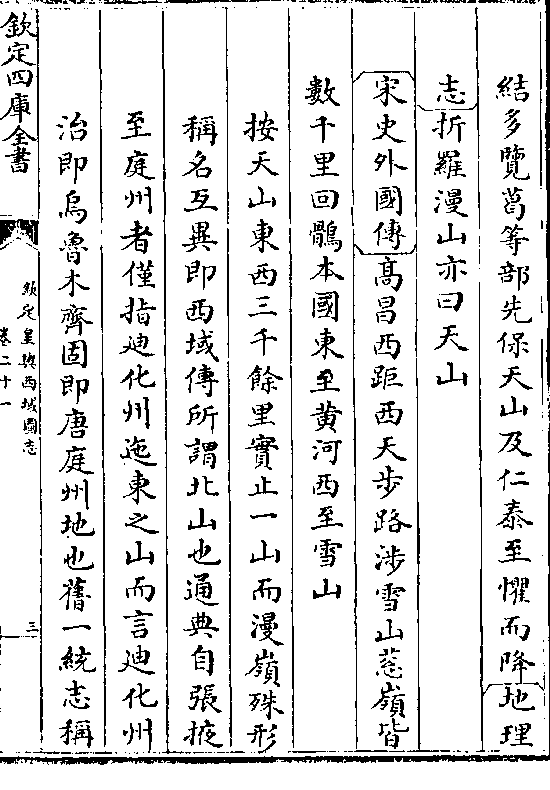 結多覽葛等部先保天山及仁泰至懼而降地理
志折羅漫山亦曰天山
宋史外國傳髙昌西距西天步路涉雪山葱嶺皆
數千里回鶻本國東至黄河西至雪山
按天山東西三千餘里實止一山而漫嶺殊形
稱名互異即西域傳所謂北山也通典自張掖
至庭州者僅指廸化州迤東之山而言廸化州
治即烏魯木齊固即唐庭州地也舊一統志稱
欽定四庫全書
欽定皇輿西域圖志
卷二十一
三